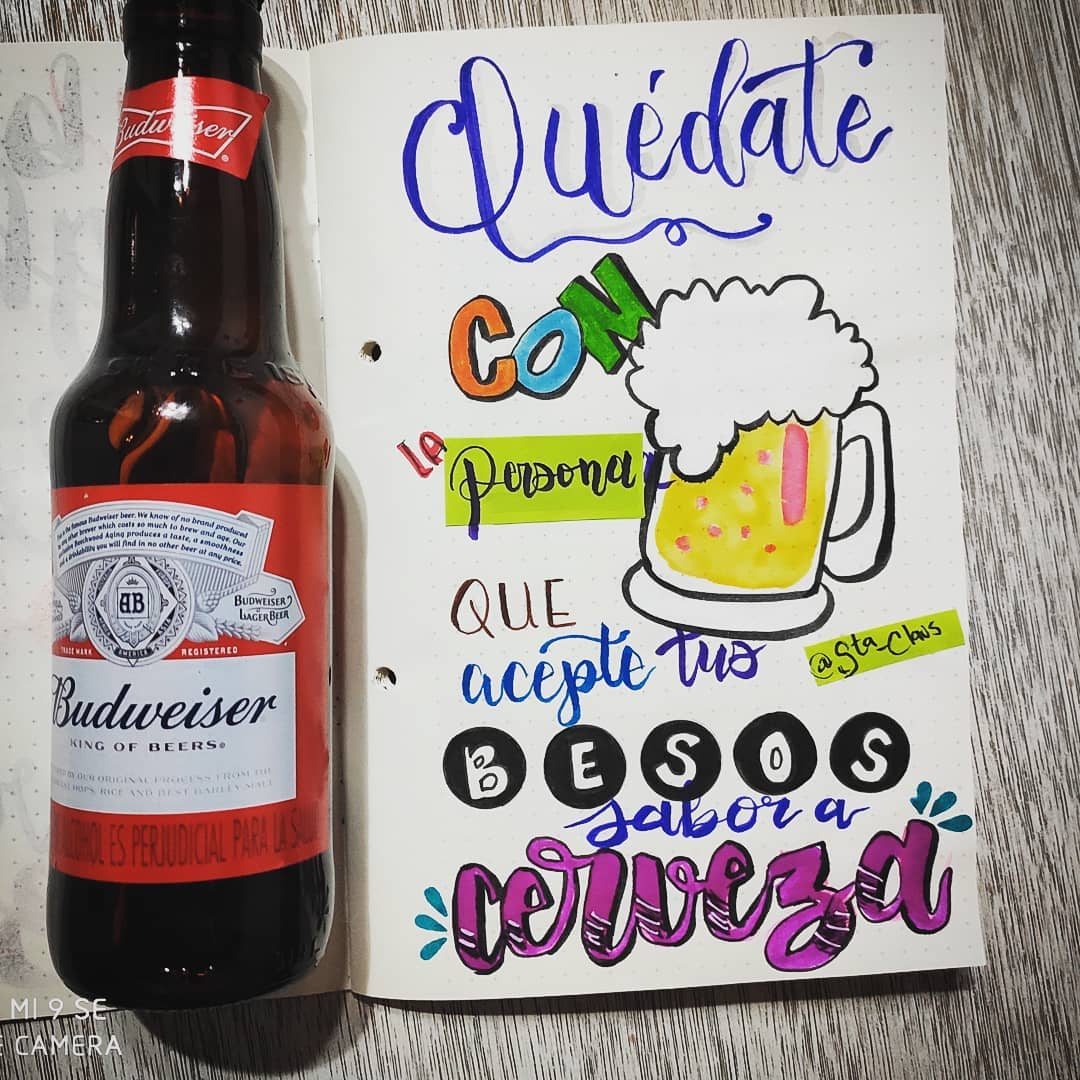 Budweiser
This is the famous Budweiser beer. We know of no brand produced
by any other brewer which costs so much to brew and age. Our
exclusive Beechwood Aging produces a taste, a smoothness
and a drinkability you will find in no other beer at any price.
AB
BUDWEISER
LAGER BEER
TRADE MARK
AMERICA
REGISTERED
Budweiser
KING OF BEERS®
BY OUR ORIGINAL PROCESS FROM THE
HOPS, RICE AND BEST BARLEY MALT
ALCOHOL ES PERJUDICIAL PARA LA
Quédate
CON
LA Persona
QUE
acépte tus
@Sta_Claus
BESOS
sabor a
cerveza
MI 9 SE
CAMERA